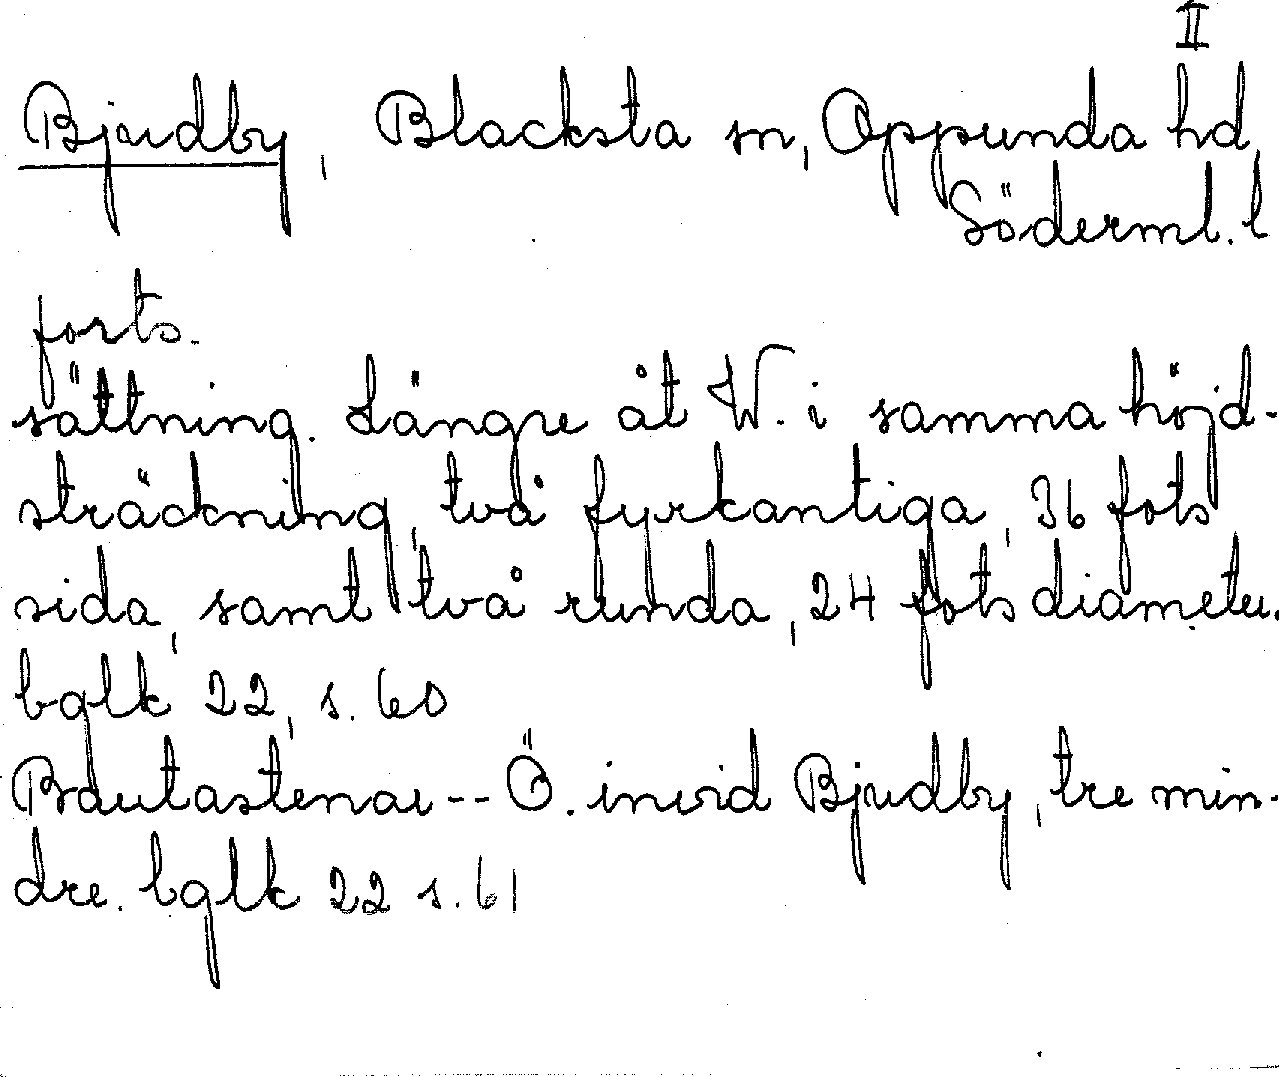 II
Bjudby, Blacksta sn, Oppunda hd,
Söderml. l
forts.
sättning. Längre åt W. i samma höjd-
sträckning, två fyrkantiga, 36 fots
sida, samt två runda, 24 fots diameter.
bglk 22, s. 60
Bautastenar -- Ö. invid Bjudby, tre min-
dre. bglk 22 s. 61